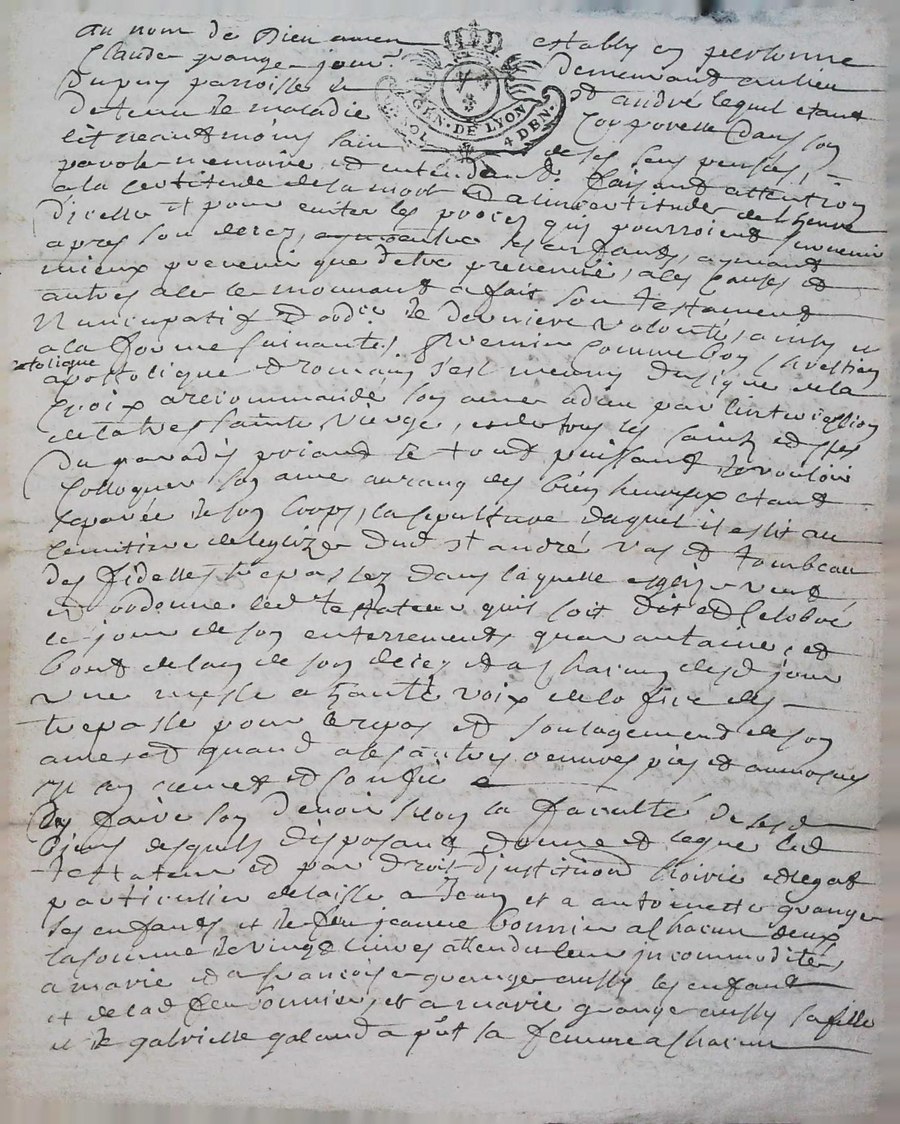 au nom de Dieu amen establÿ en personne
Claude grange jour demeurant au lieu
Dupuy parroisse de St andré lequel etant
detenu de maladie Corporelle dans son
lit neantmoins sain de ses sens pensées,
GEN. DE LYON
4 DEN.
parole memoire et entendement faisant attention
a la certitude de la mort et a lincertitude de lheure
dicelle et pour eviter les proces qui pourroient survenir
apres son deces, entre ses enfants, aymant
mieux prevenir que detre prevenu, a ses causes et
autres a le mouvant a fait son testament
Nuncupatif et ordre de derniere volonté, ainsy et
a la forme suivante, Premier comme bon Chrestien
catolique
apostolique et romain s'est meuny du signe de la
Croix a recommandé son ame a dieu par lintercession
de la tres sainte vierge, et de tous les saints et stes
du paradis priant le tout puissant de vouloir
Colloquer son ame au rang des bien heureux etant
separée de son corps, la sepulture duquel il eslit au
cemitiere de leglize dud St andré vas et tombeau
des fidelles trepassez dans laquelle eglize veut
et ordonne led testateur quil soit dit et celebré
le jour de son enterrement, quarantaine, et
bout de lan de son deces et a chacun desd jour
une messe a haute voix de lofice des
trepassé pour le repos et soulagement de son
ame et quand a les autres oeuvres pies et aumosnes
il sen remet et confie
den faire son devoir selon la faculté de sesd
biens desquels disposant donne et legue led
testateur et par droit dinstitution hoirie et legat
particulier delaisse a Jean et a antoinette grange
ses enfants et de feu jeanne bonnier a chacun deux
la somme de vingt livres attendu leur incommodités
a marie et a francoise grange aussy ses enfant
et de lad feu bonnier, et a marie grange aussy sa fille
et de gabrielle galand a pnt sa femme a chacun